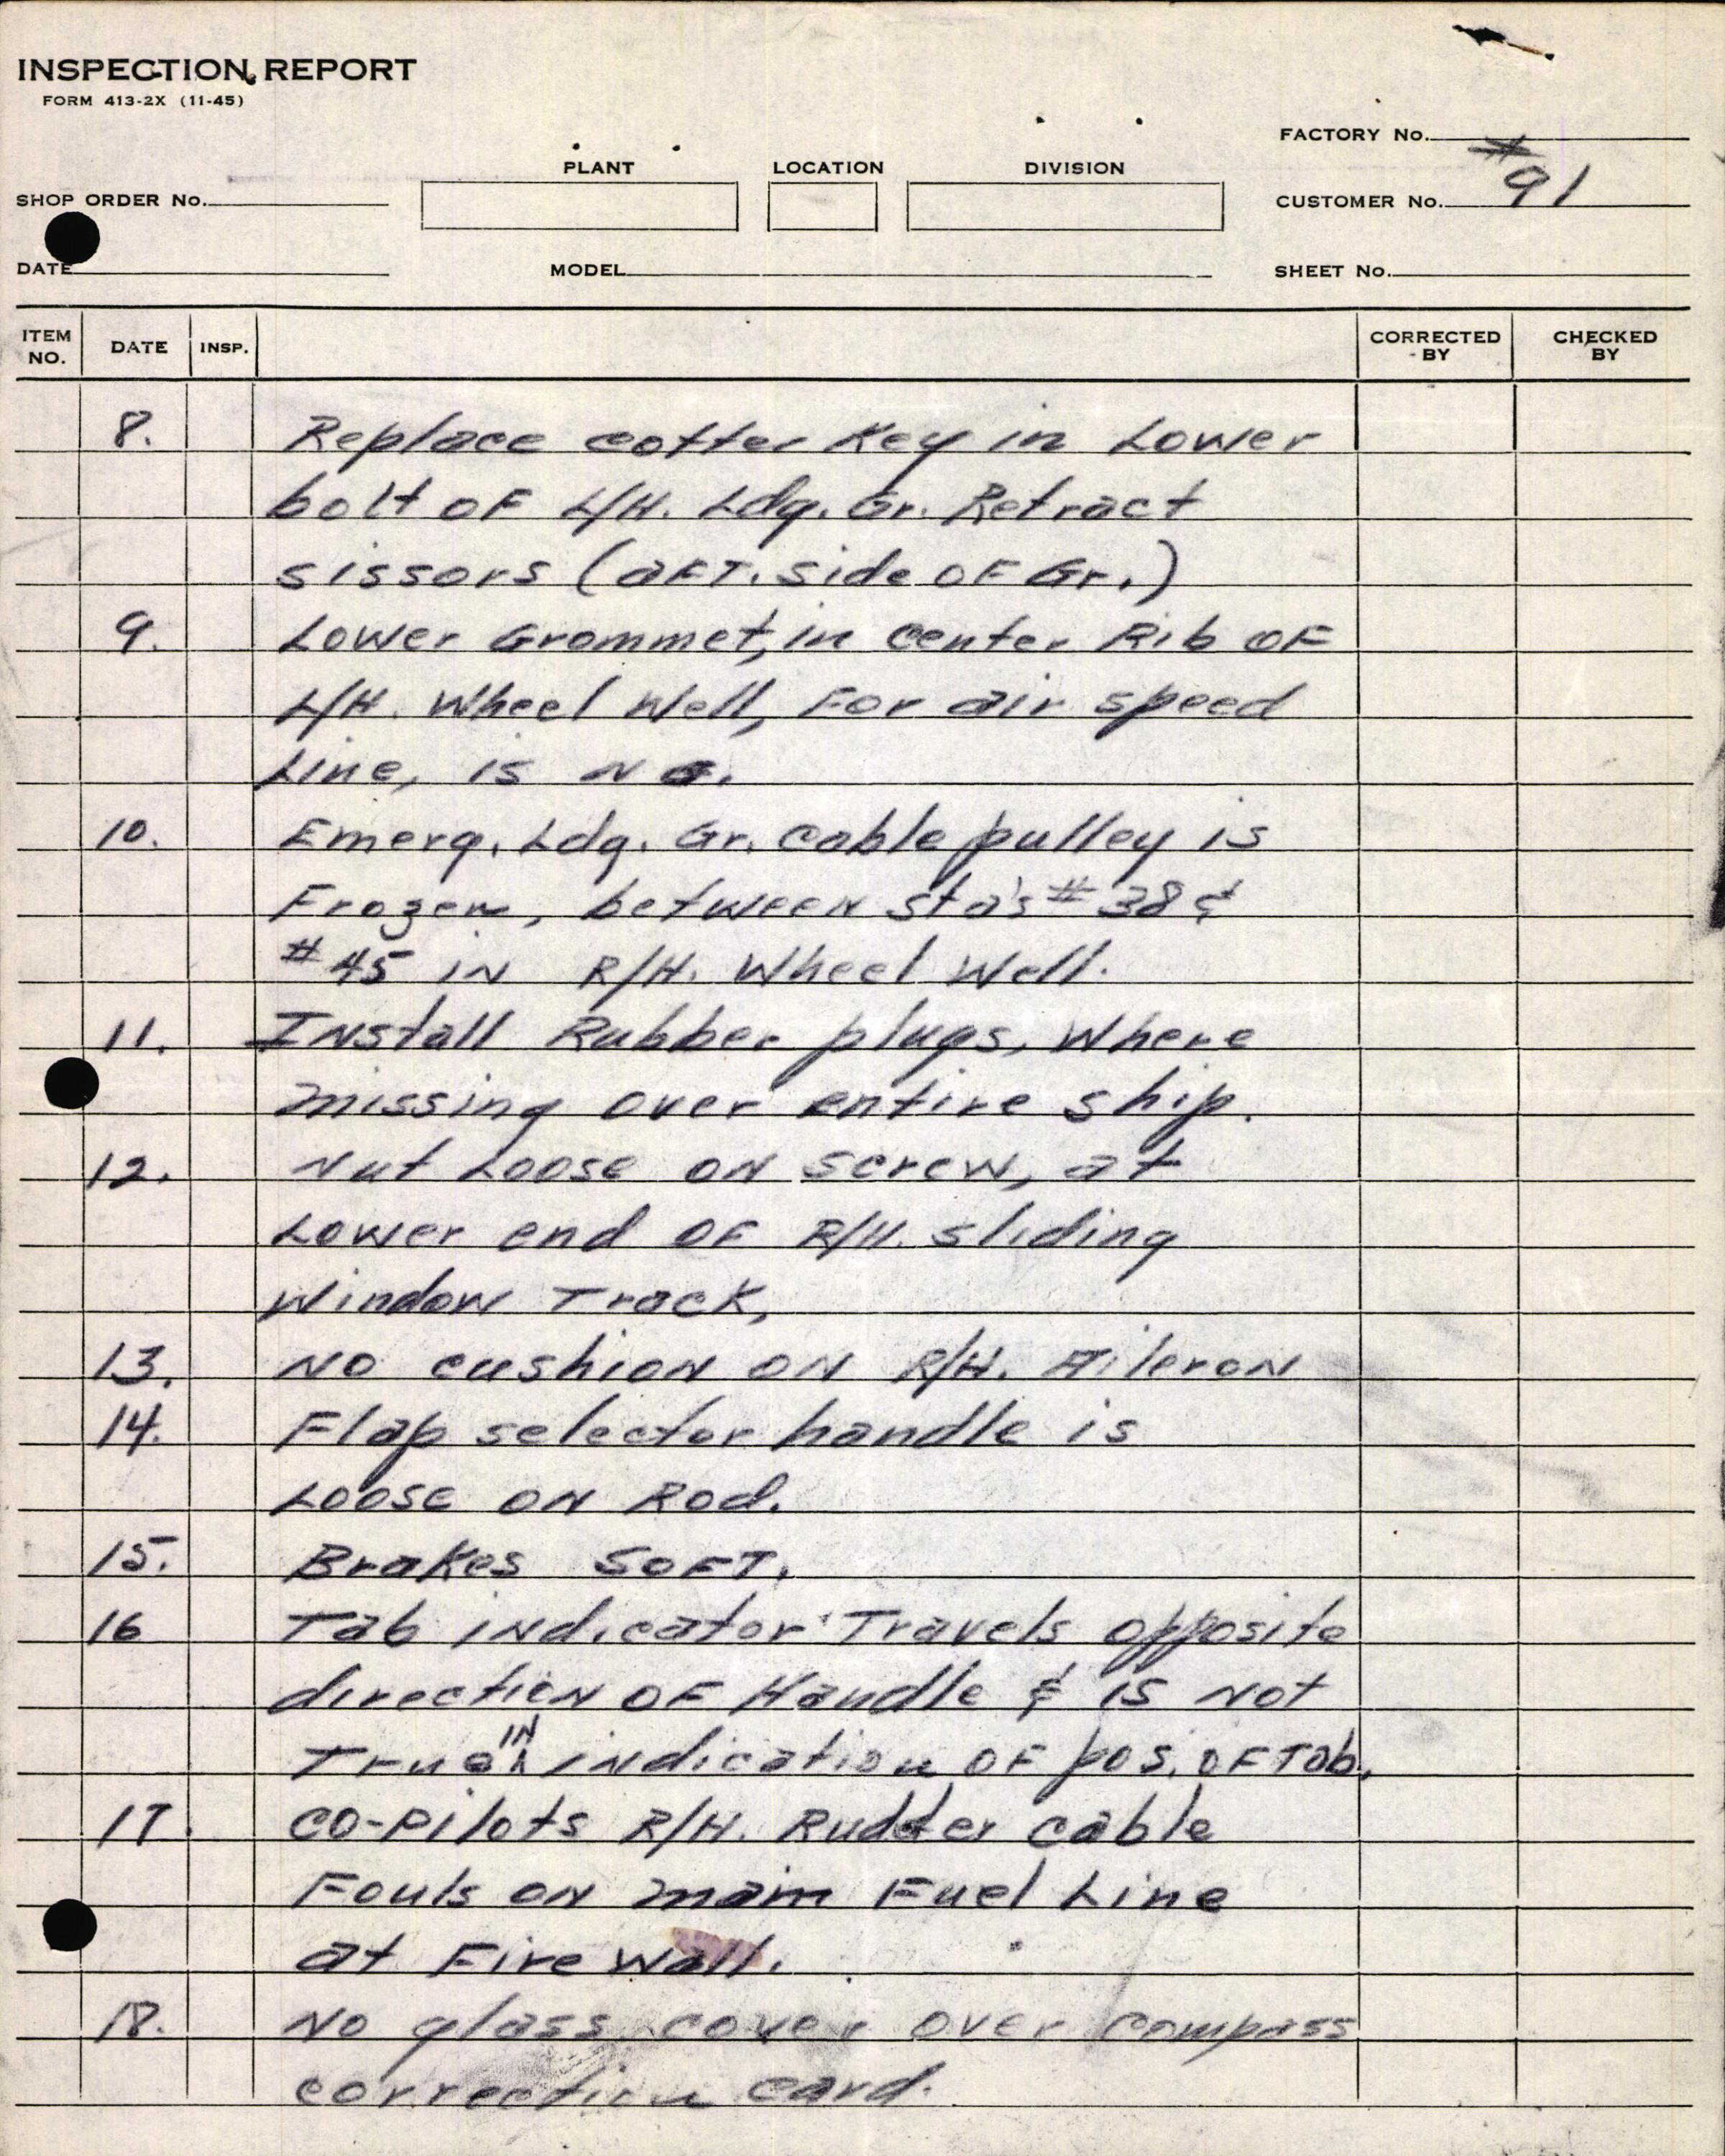 INSPECTION REPORT
FORM 413-2X (11-45)
FACTORY No.
PLANT LOCATION DIVISION
#
SHOP ORDER No. CUSTOMER No. 91
DATE MODEL SHEET No.
ITEM NO. DATE INSP. CORRECTED BY CHECKED BY
8. Replace cotter Key in Lower
bolt OF L/H. Ldg. Gr. Retract
sissors (aFT. side OF Gr.)
9. Lower Grommet, in center Rib OF
L/H. Wheel Well, For air speed
Line, is NG.
10. Emerg. Ldg. Gr. cable pulley is
Frozen, between sta's #38 &
#45 IN R/H. Wheel Well.
11. INstall Rubber plugs, Where
missing over entire ship.
12. Nut Loose ON screw, at
Lower end OF R/H. sliding
Window Track,
13. NO cushioN ON R/H. AileroN
14. Flap selector handle is
Loose ON Rod.
15. Brakes SOFT.
16 Tab iNdicator Travels opposite
directioN OF Handle & is Not
True IN indication OF pos. OF Tab.
17. CO-Pilots R/H. Rudder cable
Fouls ON main Fuel Line
at Fire Wall.
18. NO glass cover over compass
correction card.